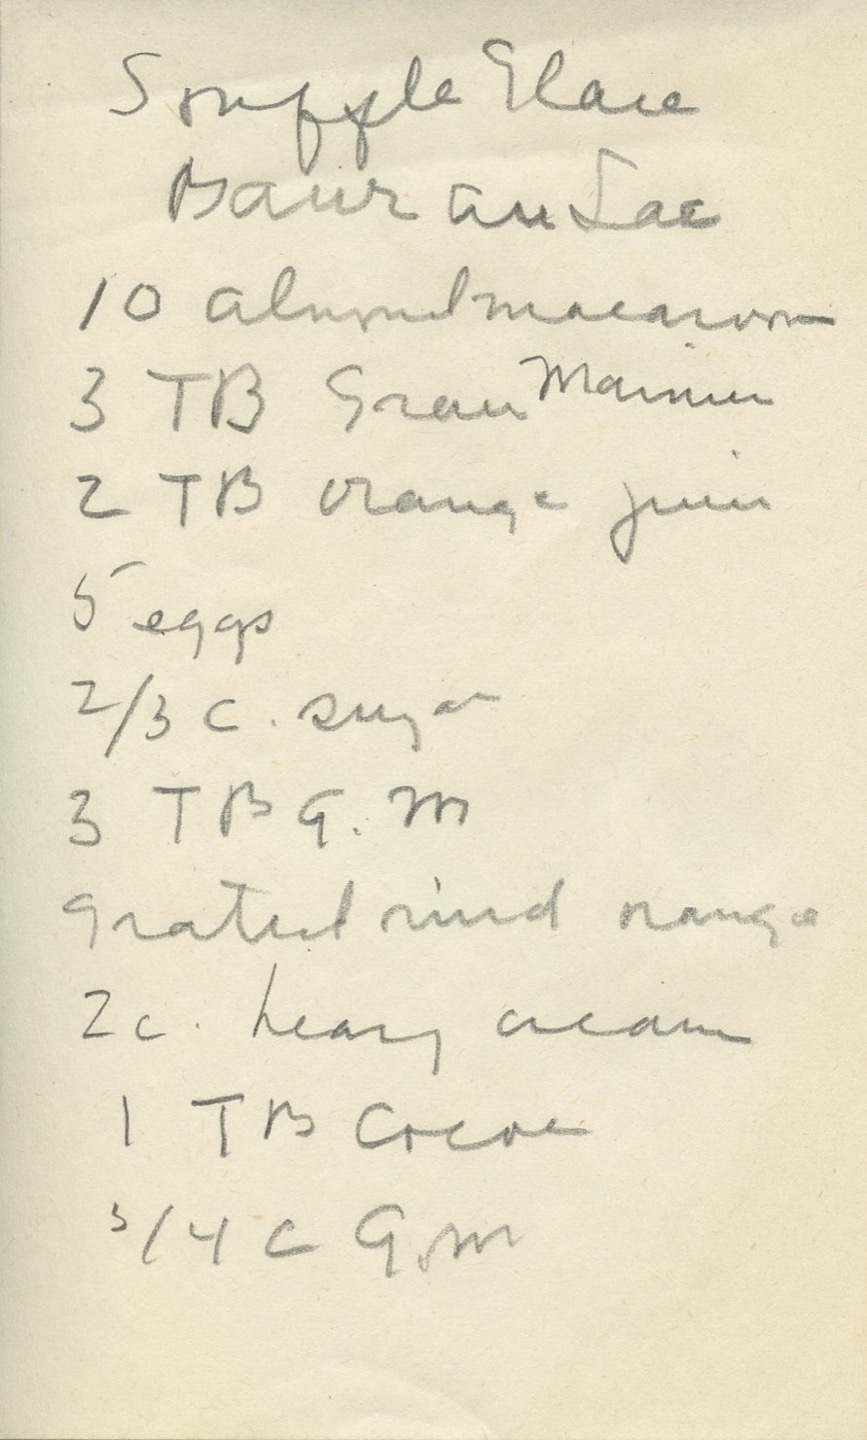 Souffle Glace
Baur au Lac
10 almond macaroon
3 TB Gran Marnier
2 TB orange juice
5 eggs
2/3 c. sugar
3 TB G. M
Grated rind orange
2 c. heavy cream
1 TB Cocoa
3/4 c G.M